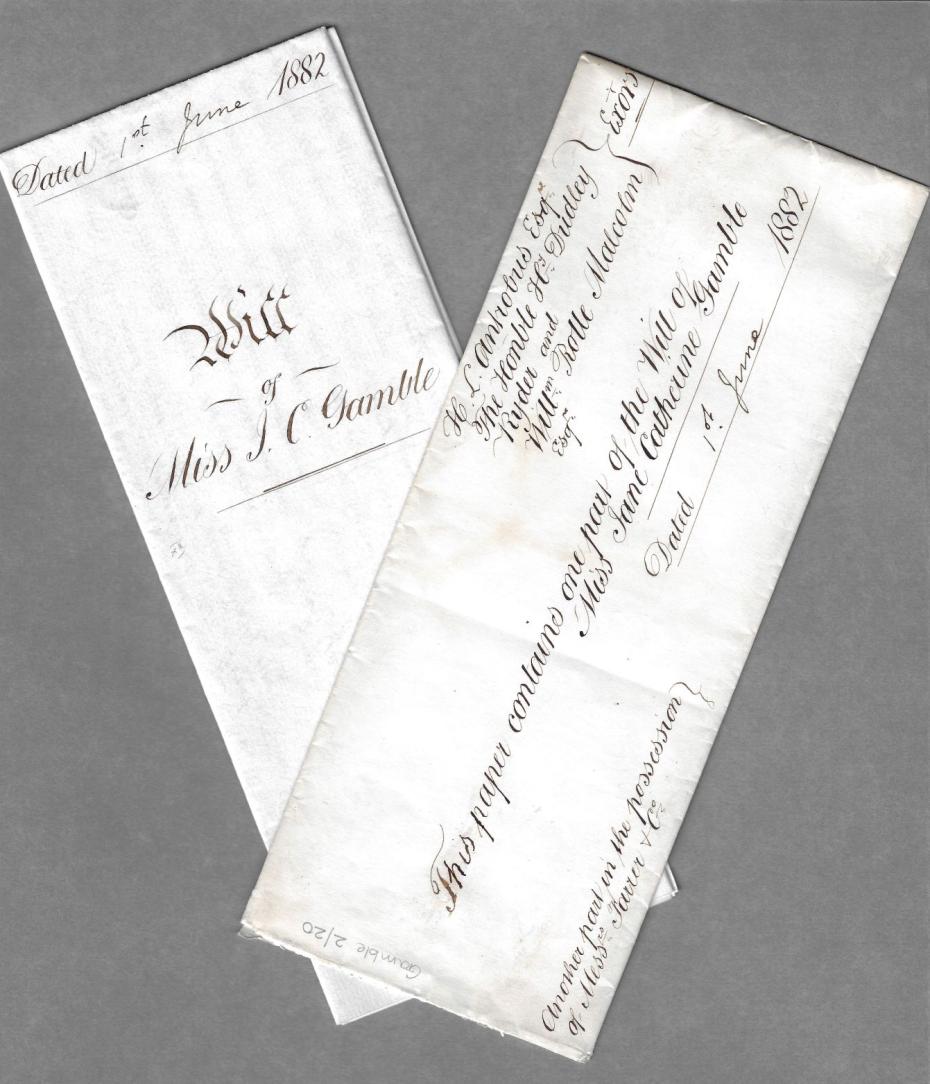 Dated 1st June 1882
Will
of
Miss J. C. Gamble
H. L. Antrobus Esqre
The Honble Hy Dudley
Ryder and
Willm Rolle Malcolm
Esqre
Exors
This paper contains one part of the Will of
Miss Jane Catherine Gamble
Dated 1st June 1882
Another part in the possession
of Messrs Farrer & Co
Gamble 2/20